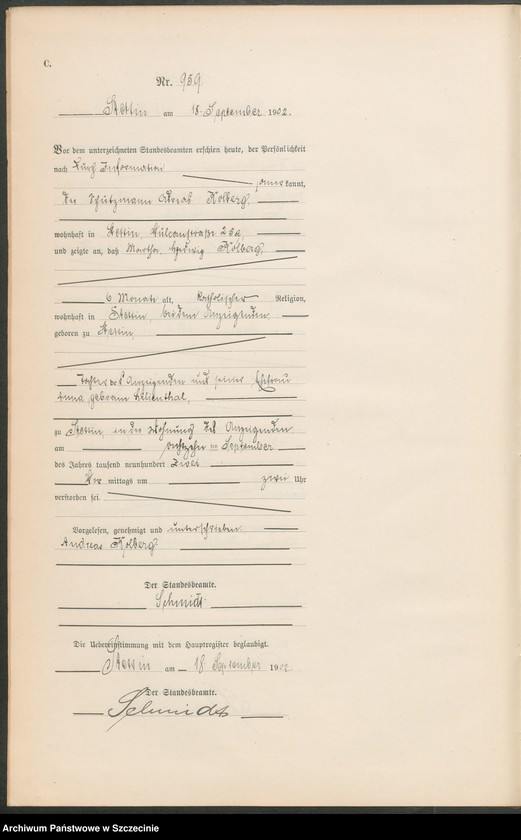 C.
Nr. 959.
Stettin am 18. September 1902.
Vor dem unterzeichneten Standesbeamten erschien heute, der Persönlichkeit
nach durch Information
kannt,
der Schutzmann Andreas Kolberg
wohnhaft in Stettin, 
und zeigte an, daß Martha Hedwig Kolberg,
6 Monate alt, katholischer Religion,
wohnhaft in Stettin, bei dem Anzeigenden
geboren zu Stettin,
Tochter des Anzeigenden und seiner Ehefrau
Anna geborene Lilienthal,
zu Stettin, in der Wohnung des Anzeigenden
am achtzehnten September
des Jahres tausend neunhundert zwei
Vor mittags um zwei Uhr
verstorben sei.
Vorgelesen, genehmigt und unterschrieben
Andreas Kolberg
Der Standesbeamte.
Schmidt
Die Uebereinstimmung mit dem Hauptregister beglaubigt.
Stettin am 18. September 1902
Der Standesbeamte.
Schmidt
Archiwum Państwowe w Szczecinie